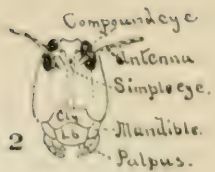 Compound eye
Antenna
Simple eye.
Cly
Lb
Mandible.
2
Palpus.